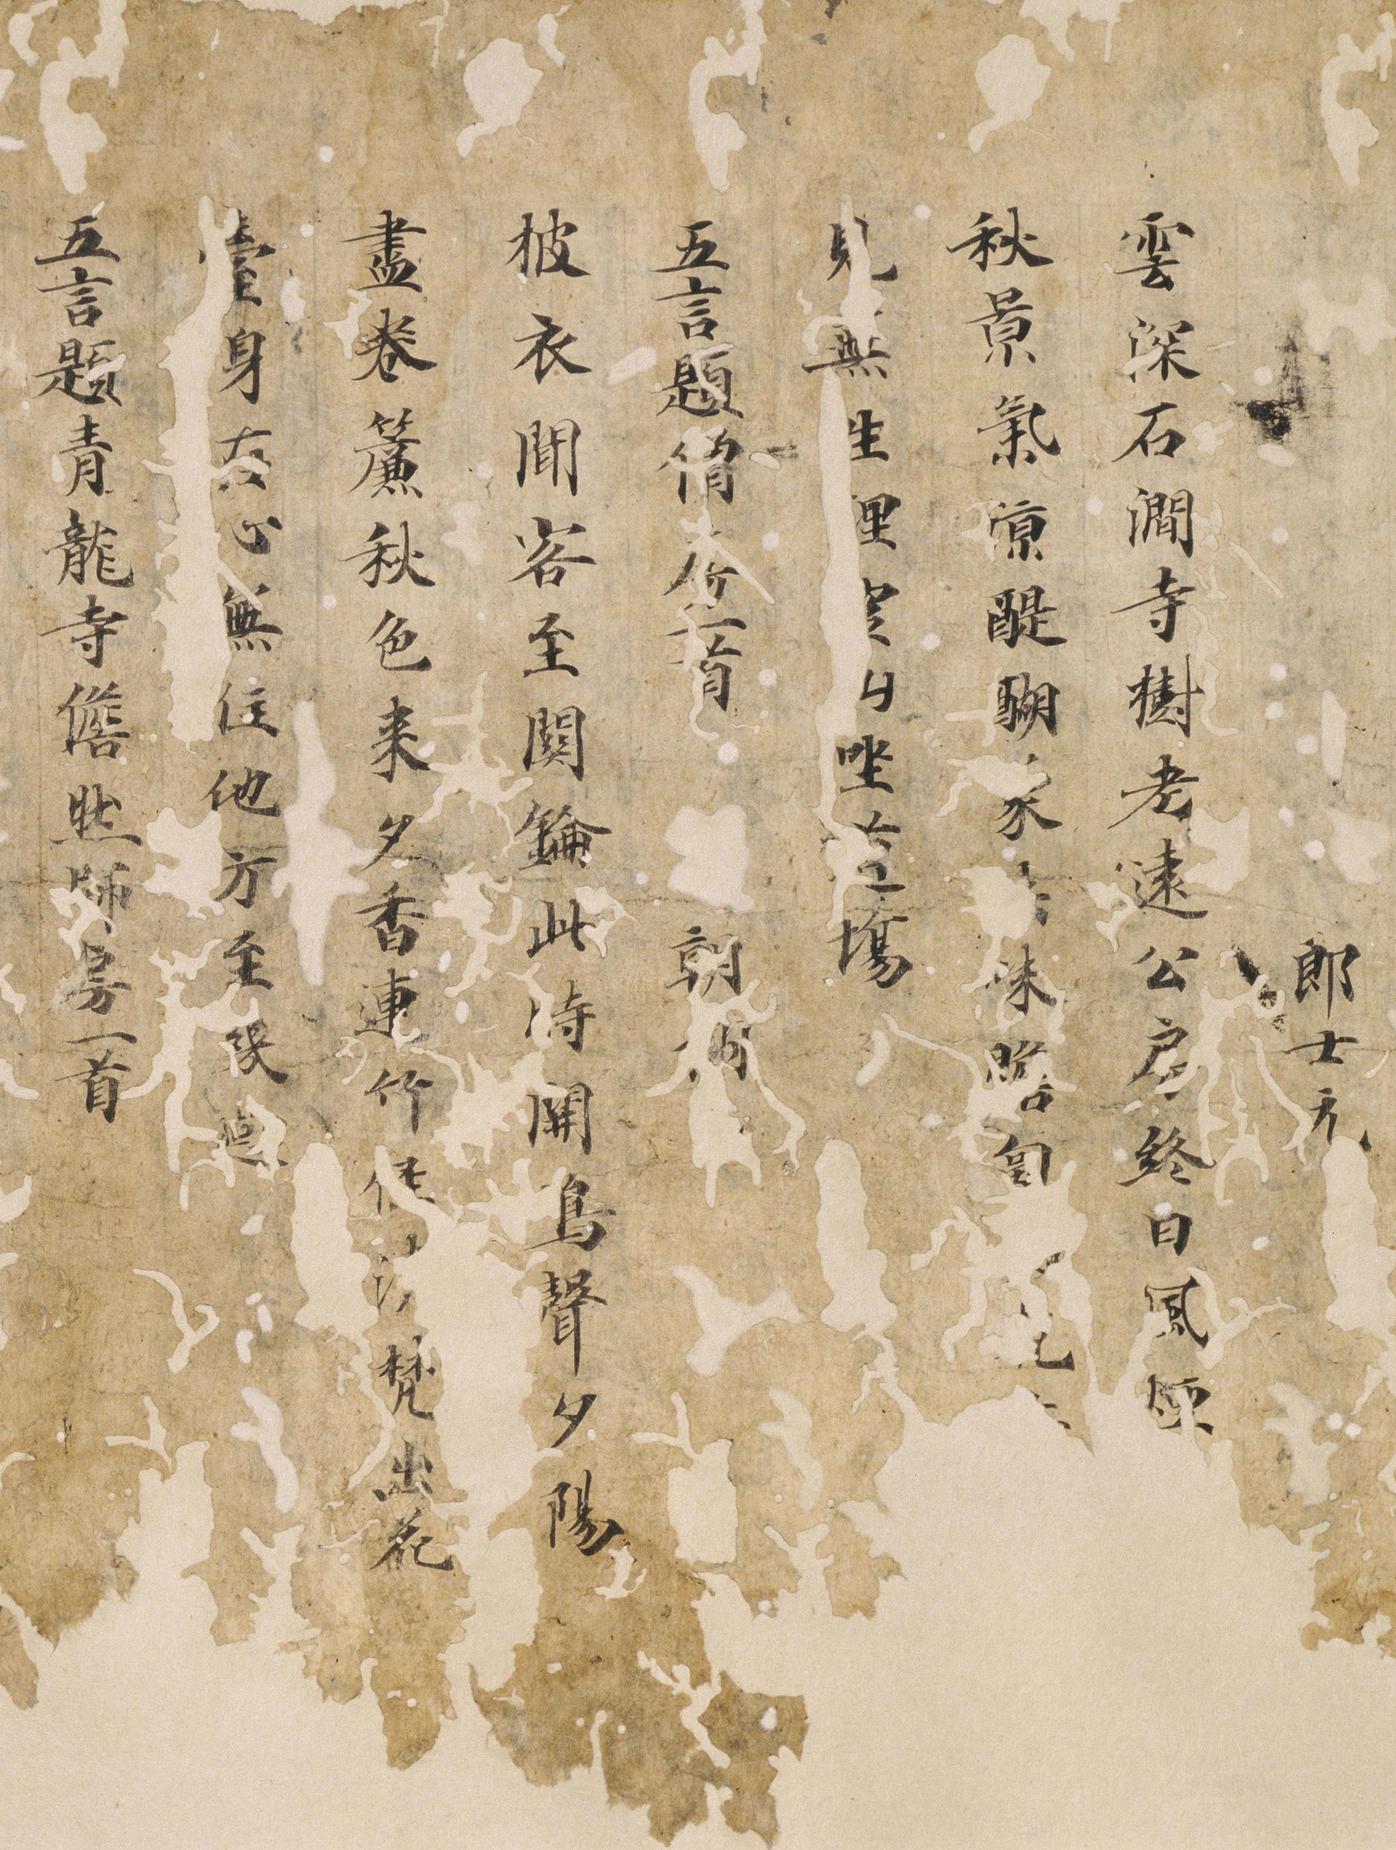 郎士元
雲深石澗寺樹老遠公房終日風煙
秋景氣涼醍醐家味瞻匐
見無生理寔日坐道場
五言題僧房一首 朝
披衣聞客至關鑰此時開鳥聲夕陽
盡卷簾秋色来夕香連竹梵出花
臺身在心無住他方至幾
五言題青龍寺僧照師房一首